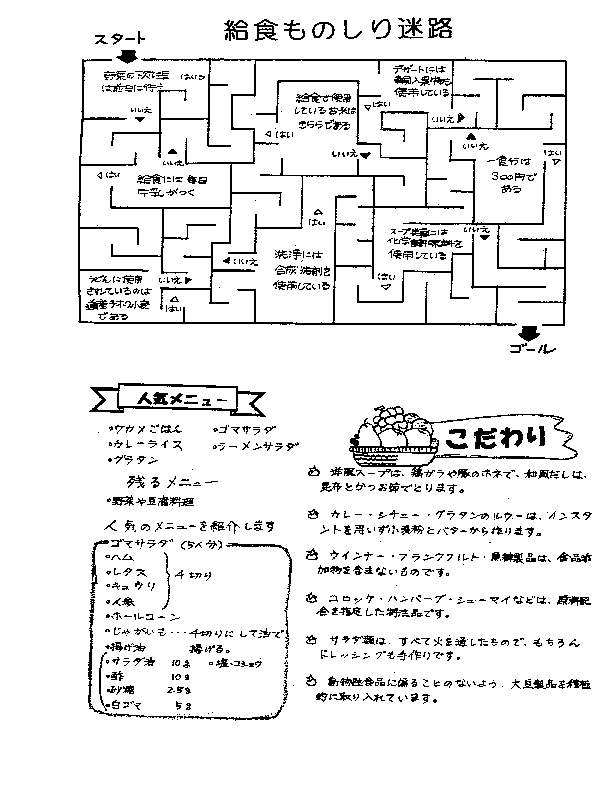 給食ものしり迷路
スタート
野菜の下処理 はい
は前日に行う
いいえ
給食で使用
しているお米は
きららである
はい
いいえ
デザートには
輸入果物を
使用している
はい
いいえ
一食分は
300円で
ある
はい
いいえ
いいえ
はい
給食には毎日
牛乳がつく
スープ
化学調味料を
使用している
いいえ
はい
洗浄には
合成洗剤を
使用している
はい
いいえ
うどんに使用
されているのは
小麦
である
いいえ
はい
ゴール
人気メニュー
・ワカメごはん ・ゴマサラダ
・カレーライス ・ラーメンサラダ
・グラタン
残るメニュー
・野菜や豆腐料理
人気のメニューを紹介します
ゴマサラダ (5人分)
・ハム
・レタス
・キュウリ
・人参
千切り
・ホールコーン
・じゃがいも・・・千切りにして油で
揚げる。
・揚げ油
・サラダ油 10g ・塩・コショウ
・酢 10g
・砂糖 2.5g
・白ゴマ 5g
こだわり
洋風スープは、鶏ガラや豚のホネで、和風だしは、
昆布とかつお節でとります。
カレー・シチュー・グラタンのルウーは、インスタ
ントを用いず小麦粉とバターから作ります。
ウインナー・フランクフルト・魚練製品は、食品添
加物を含まないものです。
コロッケ・ハンバーグ・シューマイなどは、原材配
合を指定した特注品です。
サラダ類は、すべて火を通したもので、もちろん
ドレッシングも手作りです。
動物性食品に偏ることのないよう、大豆製品を積極
的に取り入れています。